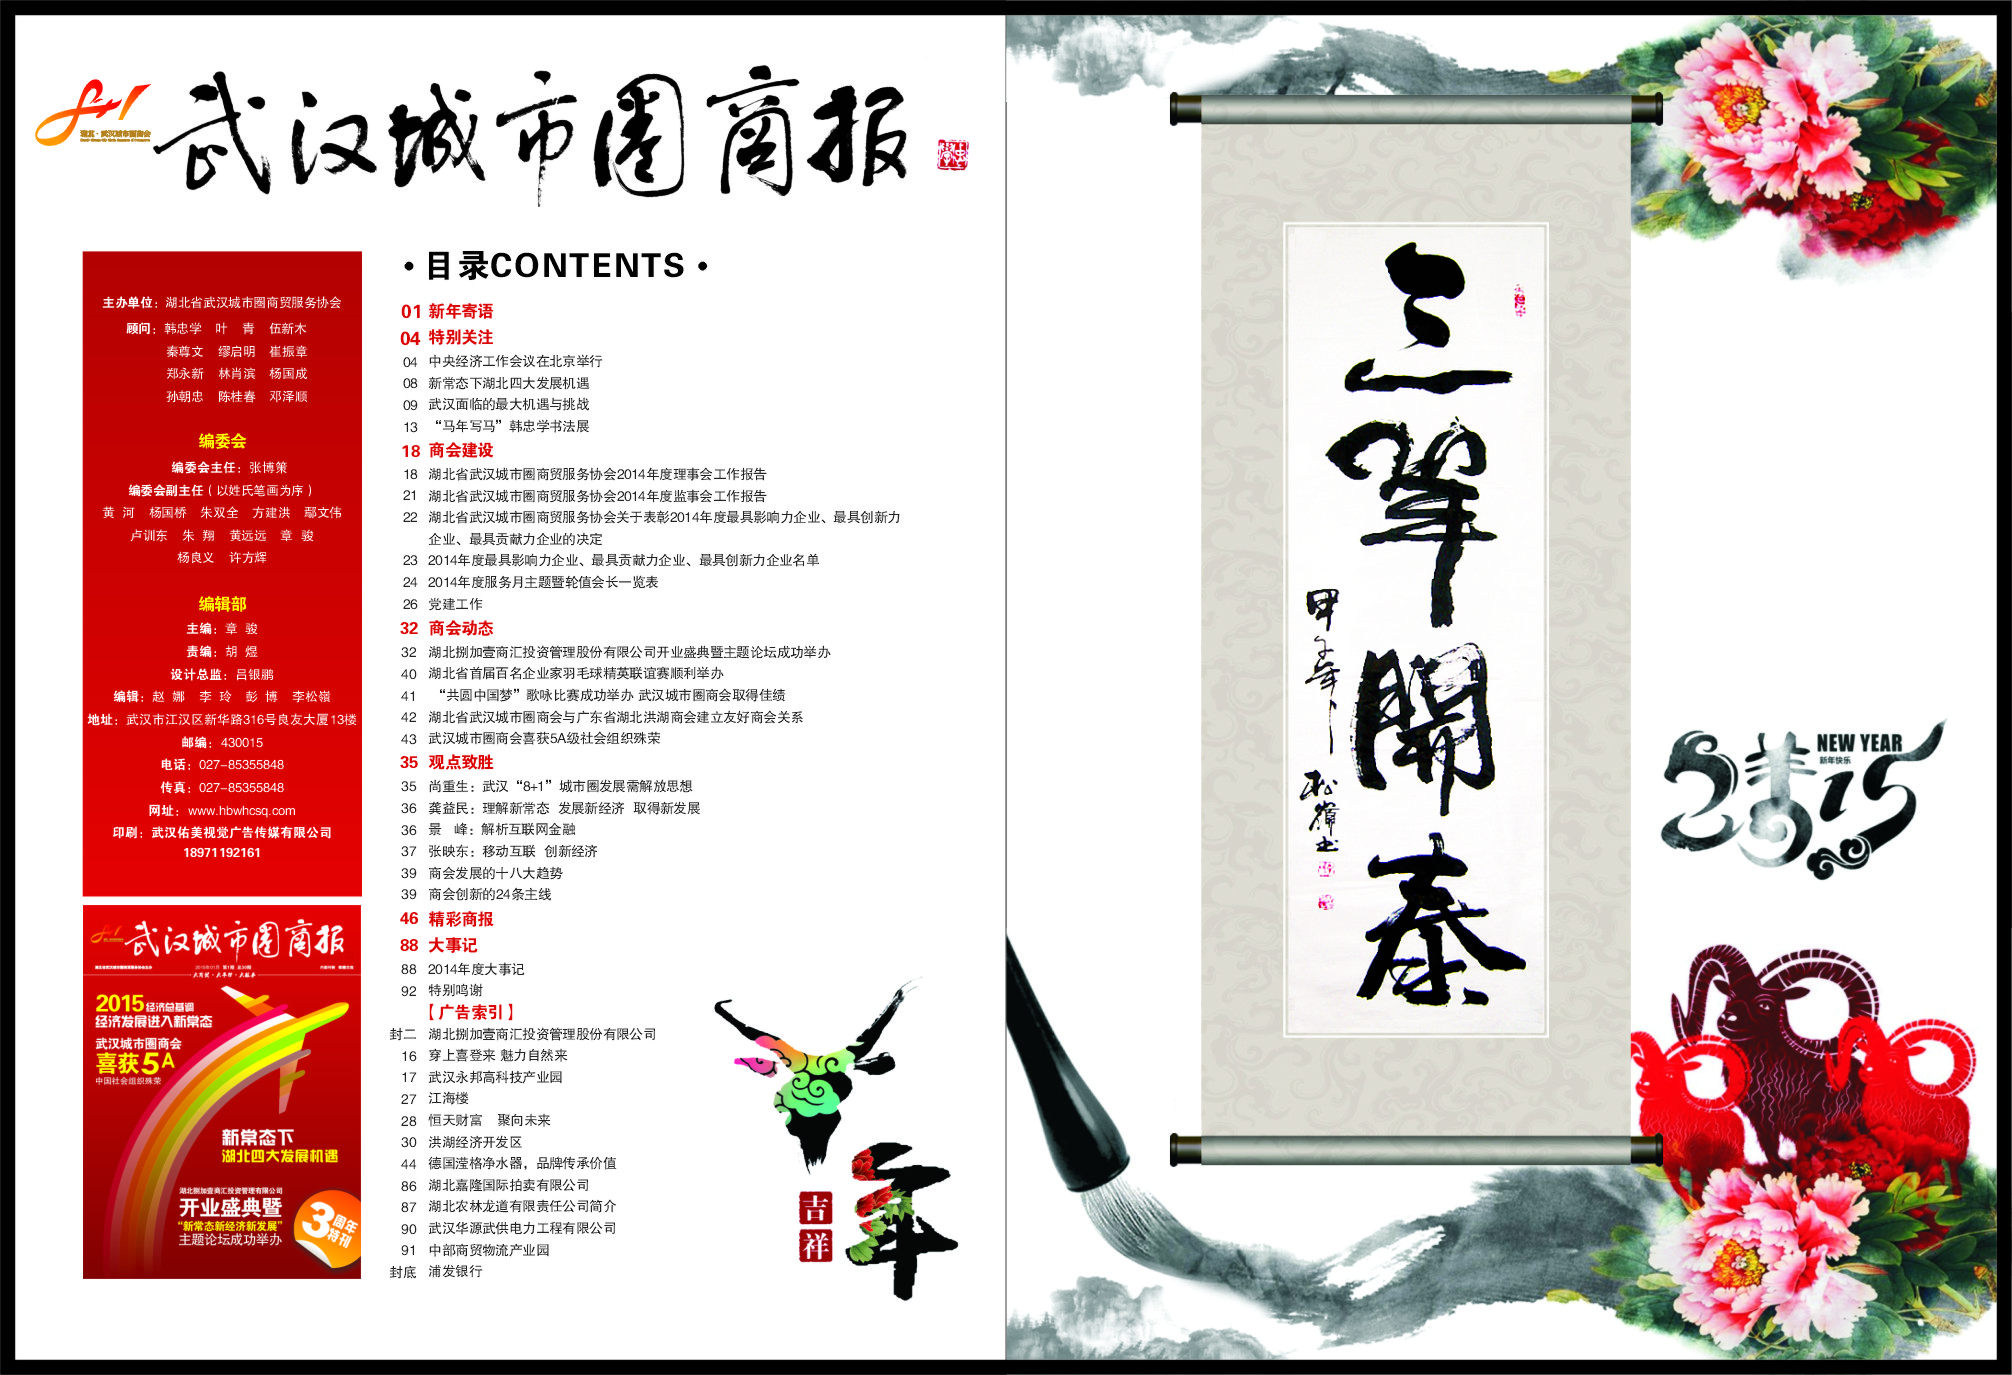 湖北·武汉城市圈商会
武汉城市圈商报
主办单位：湖北省武汉城市圈商贸服务协会
顾问：韩忠学 叶 青 伍新木
秦尊文 缪启明 崔振章
郑永新 林肖滨 杨国成
孙朝忠 陈桂春 邓泽顺
编委会
编委会主任：张博策
编委会副主任（以姓氏笔画为序）
黄 河 杨国桥 朱双全 方建洪 鄢文伟
卢训东 朱 翔 黄远远 章 骏
杨良义 许方辉
编辑部
主编：章 骏
责编：胡 煜
设计总监：吕银鹏
编辑：赵 娜 李 玲 彭 博 李松嶺
地址：武汉市江汉区新华路316号良友大厦13楼
邮编：430015
电话：027-85355848
传真：027-85355848
网址：www.hbwhcsq.com
印刷：武汉佑美视觉广告传媒有限公司
18971192161
武汉城市圈商报
2015经济总基调
经济发展进入新常态
武汉城市圈商会
喜获5A
中国社会组织殊荣
新常态下
湖北四大发展机遇
湖北捌加壹商汇投资管理有限公司
开业盛典暨
“新常态新经济新发展”
主题论坛成功举办
3周年
特刊
·目录CONTENTS·
01 新年寄语
04 特别关注
04 中央经济工作会议在北京举行
08 新常态下湖北四大发展机遇
09 武汉面临的最大机遇与挑战
13 “马年写马”韩忠学书法展
18 商会建设
18 湖北省武汉城市圈商贸服务协会2014年度理事会工作报告
21 湖北省武汉城市圈商贸服务协会2014年度监事会工作报告
22 湖北省武汉城市圈商贸服务协会关于表彰2014年度最具影响力企业、最具创新力
企业、最具贡献力企业的决定
23 2014年度最具影响力企业、最具贡献力企业、最具创新力企业名单
24 2014年度服务月主题暨轮值会长一览表
26 党建工作
32 商会动态
32 湖北捌加壹商汇投资管理股份有限公司开业盛典暨主题论坛成功举办
40 湖北省首届百名企业家羽毛球精英联谊赛顺利举办
41 “共圆中国梦”歌咏比赛成功举办 武汉城市圈商会取得佳绩
42 湖北省武汉城市圈商会与广东省湖北洪湖商会建立友好商会关系
43 武汉城市圈商会喜获5A级社会组织殊荣
35 观点致胜
35 尚重生：武汉“8+1”城市圈发展需解放思想
36 龚益民：理解新常态 发展新经济 取得新发展
36 景 峰：解析互联网金融
37 张映东：移动互联 创新经济
39 商会发展的十八大趋势
39 商会创新的24条主线
46 精彩商报
88 大事记
88 2014年度大事记
92 特别鸣谢
【广告索引】
封二 湖北捌加壹商汇投资管理股份有限公司
16 穿上喜登来 魅力自然来
17 武汉永邦高科技产业园
27 江海楼
28 恒天财富 聚向未来
30 洪湖经济开发区
44 德国滢格净水器，品牌传承价值
86 湖北嘉隆国际拍卖有限公司
87 湖北农林龙道有限责任公司简介
90 武汉华源武供电力工程有限公司
91 中部商贸物流产业园
封底 浦发银行
吉祥
年
三羊開泰
甲午年
松嶺书
2015
NEW YEAR
新年快乐